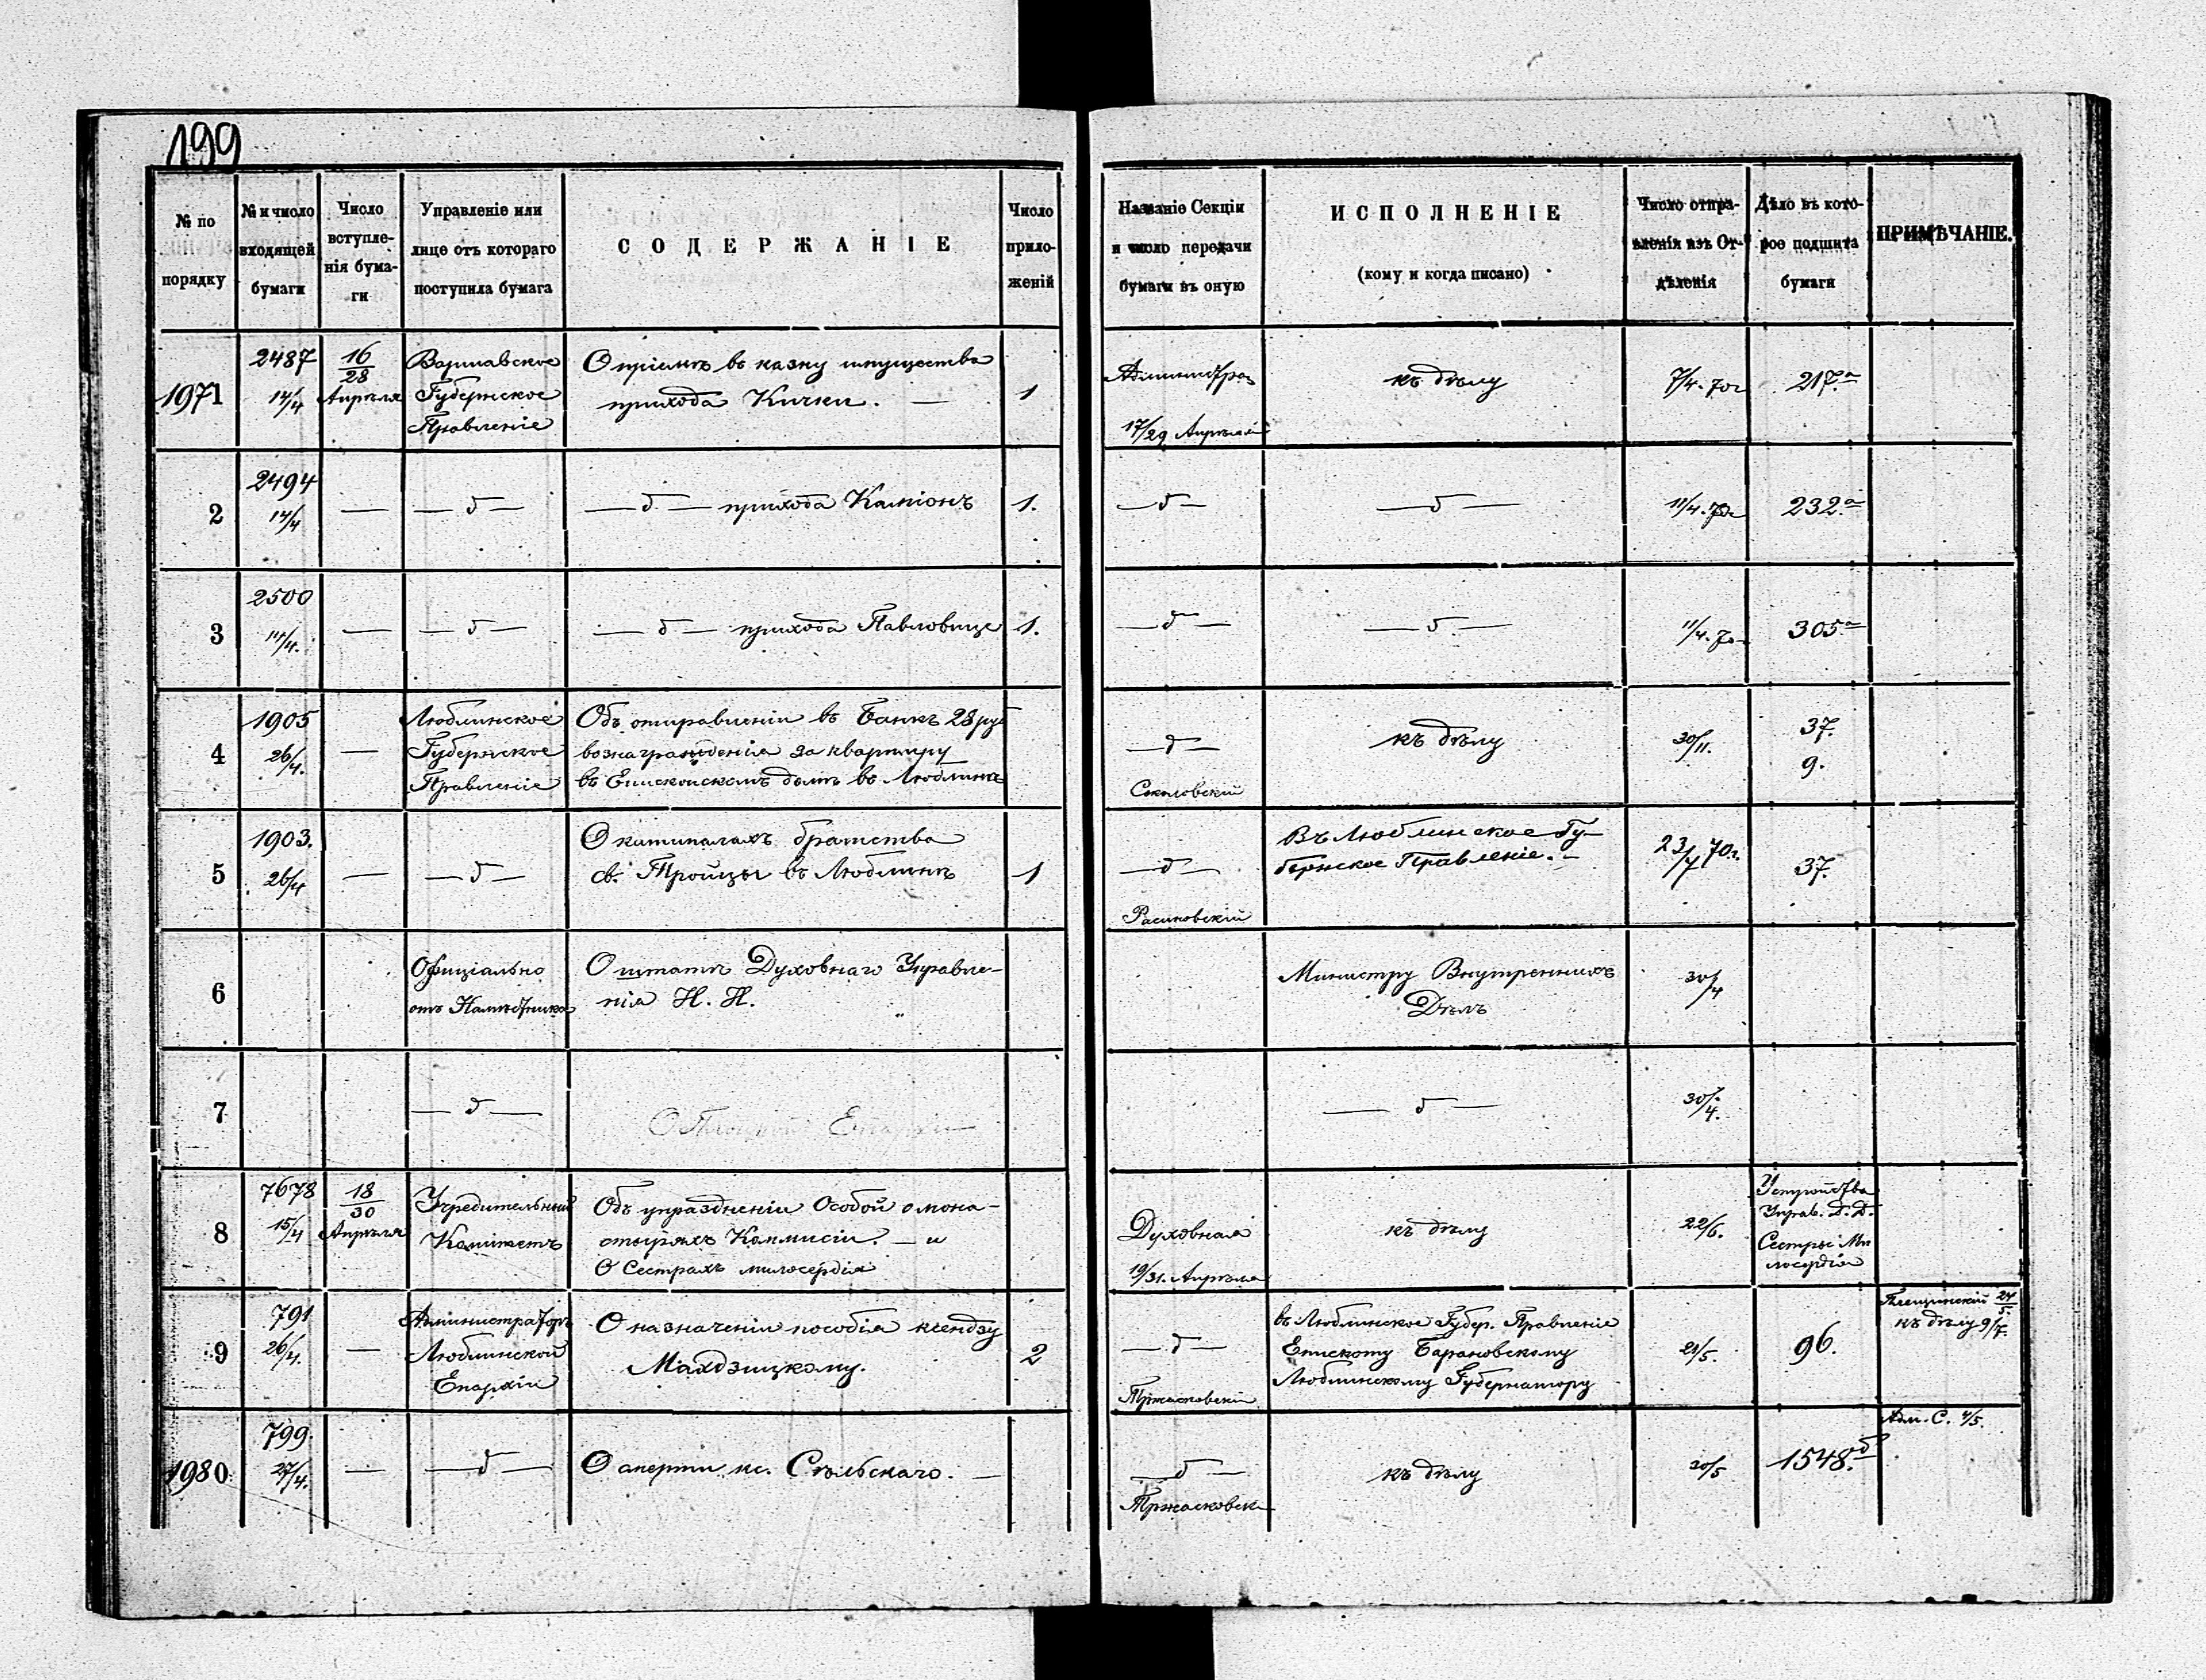 199
№ по порядку
№ и число входящей бумаги
Число вступленія бумаги
Управленіе или лице отъ котораго поступила бумага
СОДЕРЖАНІЕ
Число приложеній
Названіе Секціи и число передачи бумаги въ оную
ИСПОЛНЕНІЕ
(кому и когда писано)
Число отправленія изъ Отдѣленія
Дѣло въ которое подшита бумага
ПРИМѢЧАНІЕ.
1971
2487
14/4
16/28 Апрѣля
Варшавское
Губернское
Правленіе
О пріемѣ въ казну имущества
прихода Кички. —
1
17/29 Апрѣля
къ дѣлу
7/4. 70г
217.а
2
2494
14/4
—
— д —
— д — прихода Каміонъ
1.
— д —
— д —
11/4. 70г
232.а
3
2500
14/4.
—
— д —
— д — прихода Павловице
1.
— д —
— д. —
11/4. 70
305а
4
1905
26/4.
—
Люблинское
Губернское
Правленіе
Объ отправленіи въ Банкъ 28 руб
вознагражденія за квартиру
въ Епископскомъ домѣ въ Люблинѣ
— д —
Соколовскій
къ дѣлу
30/11.
37.
9.
5
1903.
26/4
—
— д —
О капиталахъ братства
св. Тройцы въ Люблинѣ
1
— д —
Въ Люблинское Гу-
бернское Правленіе. —
23/7 70г.
37.
6
Офиціально
отъ Намѣстника
О штатѣ Духовнаго Управле-
нія Н. Н.
Министру Внутреннихъ
Дѣлъ
30/4
7
— д —
— д —
30/4.
8
7678
15/4
18/30 Апрѣля
Учредительный
Комитетъ
Объ упраздненіи Особой о мона-
стыряхъ Коммисіи. — и
О Сестрахъ милосердія
Духовная
19/31. Апрѣля
къ дѣлу
22/6.
Устройства
Управ. Д. Д.
Сестры Ми
лосердія
9
791
26/4.
—
Администраторъ
Люблинской
Епархіи
О назначеніи пособія ксендзу
2
— д —
въ Люблинское Губер. Правленіе
Епископу Барановскому
Люблинскому Губернатору
21/5.
96.
24/5.
къ дѣлу 9/7.
1980
799.
27/4.
—
— д —
О смерти кс. Сѣльскаго. —
— д —
къ дѣлу
20/5
1548.б
Адм. С. 4/5.